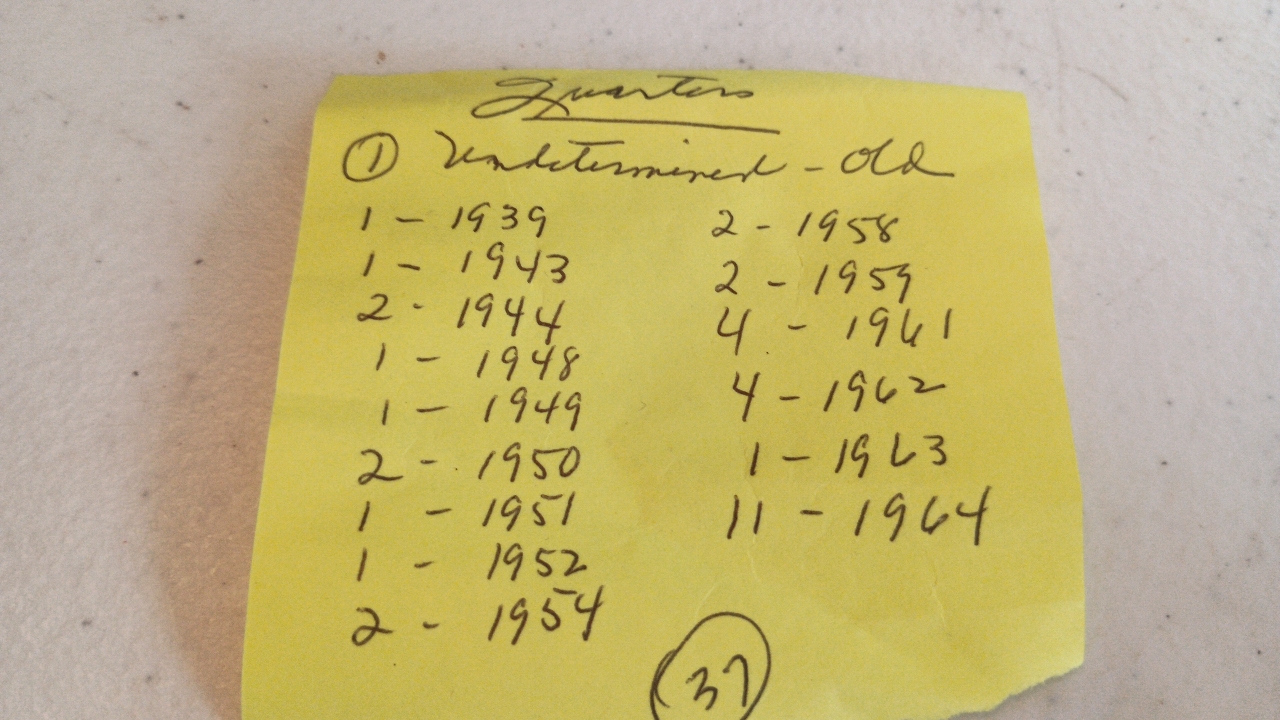 Quarters
① Undetermined - Old
1 - 1939
1 - 1943
2 - 1944
1 - 1948
1 - 1949
2 - 1950
1 - 1951
1 - 1952
2 - 1954
2 - 1958
2 - 1959
4 - 1961
4 - 1962
1 - 1963
11 - 1964
37